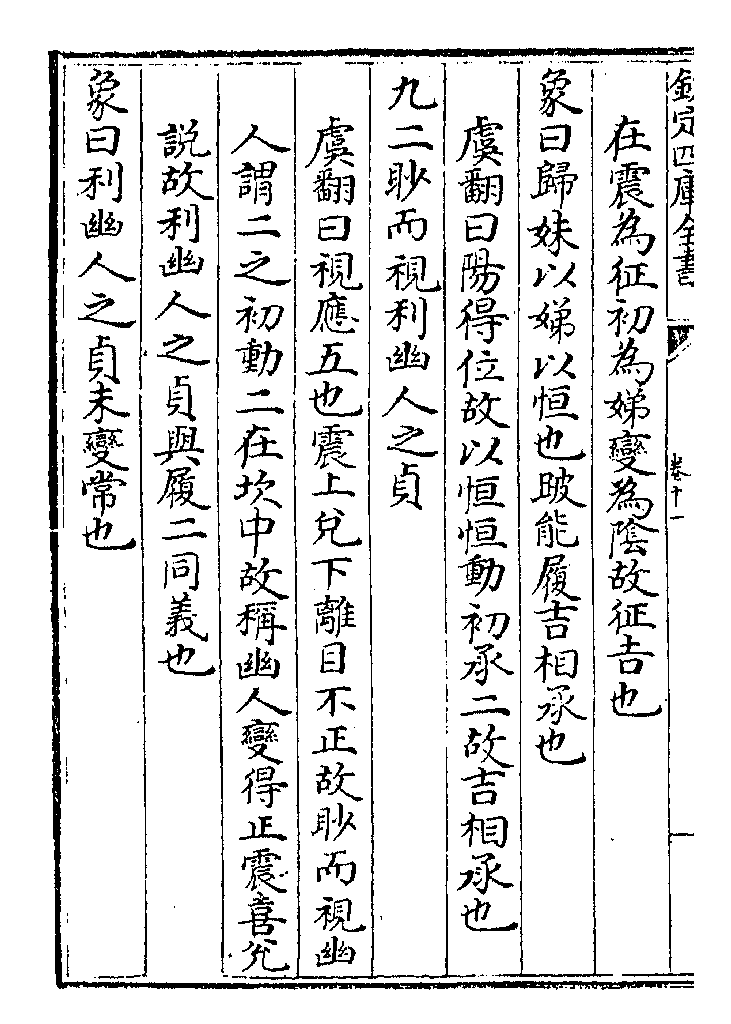 欽定四庫全書
卷十一
在震為征初為娣變為隂故征吉也
象曰歸妹以娣以恒也跛能履吉相承也
虞翻曰陽得位故以恒恒動初承二故吉相承也
九二眇而視利幽人之貞
虞翻曰視應五也震上兌下離目不正故眇而視幽
人謂二之初動二在坎中故稱幽人變得正震喜兌
説故利幽人之貞與履二同義也
象曰利幽人之貞未變常也